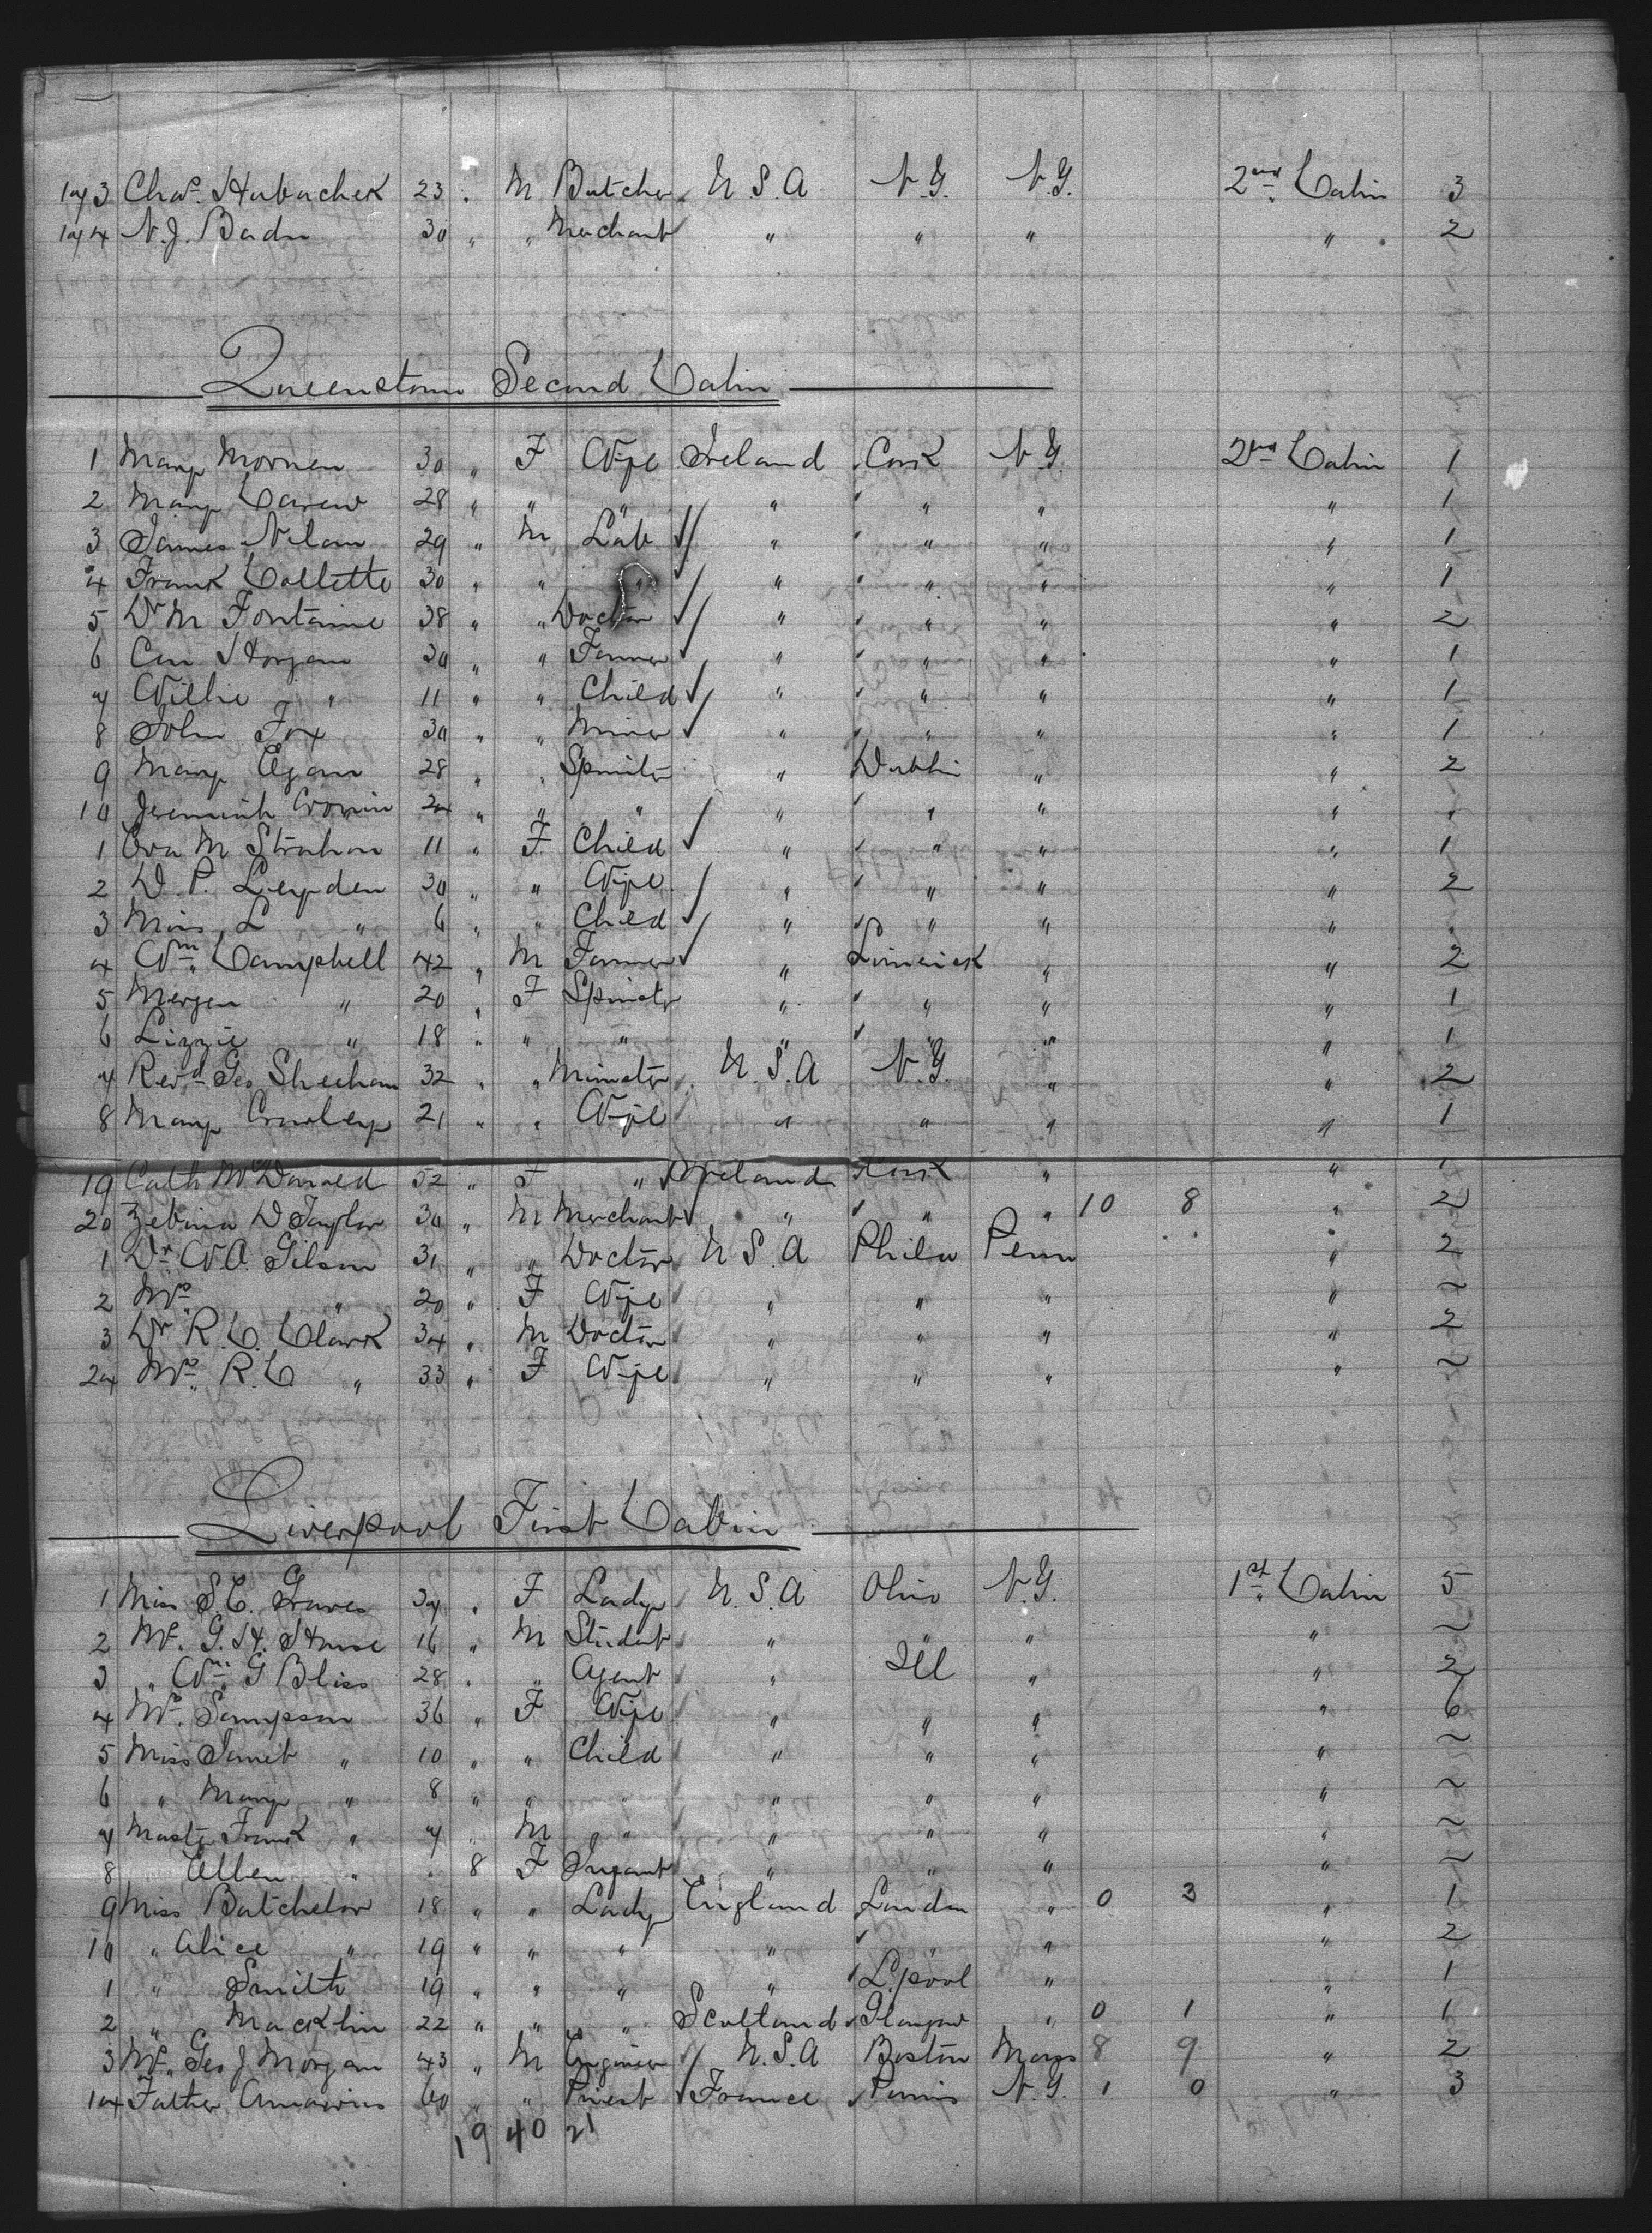 173 Chas. Hubachek 23 " M Butcher U.S.A N.Y. N.Y. 2nd Cabin 3
174 N.J. Badn 30 " " Merchant " " " " 2
Queenstown Second Cabin
1 Mary Mornen 30 " F Wife Ireland Cork N.Y. 2nd Cabin 1
2 Mary Carew 28 " " " " " " " 1
3 James Nelan 29 " M Lab " " " " 1
4 Frank Collette 30 " " " " " " " 1
5 Dr M Fontaine 38 " " Doctor " " " " 2
6 Con Horgan 30 " " Farmer " " " " 1
7 Willie " 11 " " Child " " " " 1
8 John Fox 30 " " Miner " " " " 1
9 Mary Egan 28 " " Spinster " Dublin " " 2
10 Jeremiah Cronin 24 " " " " " " " "
1 Eva M Strahan 11 " F Child " " " " 1
2 D.P. Leyden 30 " " Wife " " " " 2
3 Miss L " 6 " " Child " " " " "
4 Wm. Campbell 42 " M Farmer " Limerick " " 2
5 Mergen " 20 " F Spinster " " " " 1
6 Lizzie " 18 " " " " " " " 1
7 Revd Geo Sheehan 32 " " Minister U.S.A N.Y. " " 2
8 Mary Crowley 21 " " Wife " " " " 1
19 Cath McDonald 52 " F " Ireland Cork " " 1
20 Zebina D Taylor 30 " M Merchant " " " 10 8 " 2
1 Dr W.A. Gilson 31 " " Doctor U.S.A Phila Penn " 2
2 Mrs " 20 " F Wife " " " " ~
3 Dr R.C. Clark 34 " M Doctor " " " " 2
24 Mrs R.C " 33 " F Wife " " " " ~
Liverpool First Cabin
1 Miss S.C. Graves 37 " F Lady U.S.A Ohio N.Y. 1st Cabin 5
2 Mr. G.H. Hurse 16 " M Student " " " " ~
3 " Wm. G Bliss 28 " " Agent " Ill " " 2
4 Mrs. Sampson 36 " F Wife " " " " 6
5 Miss Janet " 10 " " Child " " " " ~
6 " Mary " 8 " " " " " " " ~
7 Mastr Frank " 7 " M " " " " " ~
8 Ellen " " 8 F Infant " " " " ~
9 Miss Batchelor 18 " " Lady England London " 0 3 " 1
10 " Alice " 19 " " " " " " " 2
1 " Smith 19 " " " " L.pool " " 1
2 " Macklin 22 " " " Scotland Glasgow " 0 1 " 1
3 Mr. Geo J Morgan 43 " M Engineer U.S.A Boston Mass 8 9 " 2
14 Father Amawins 60 " " Priest France Parris N.Y. 1 0 " 3
19 40 21